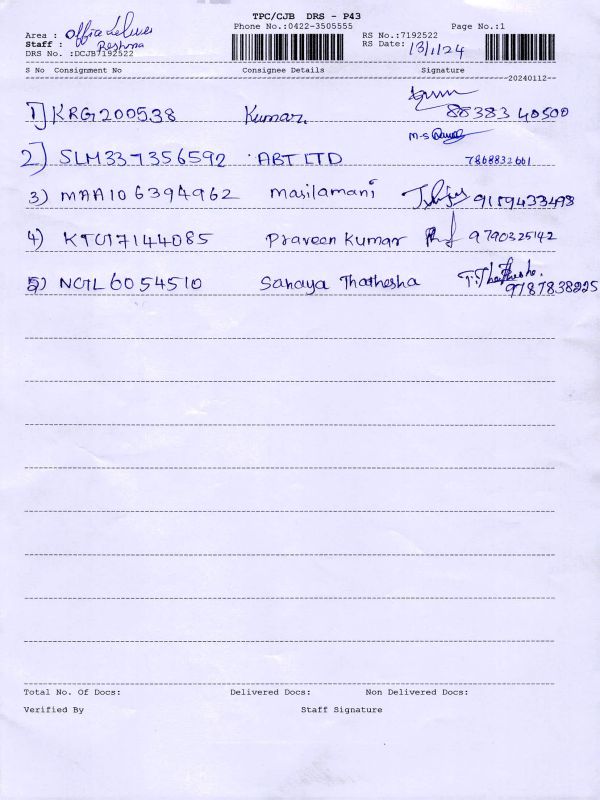 TPC/CJB DRS - P43
Phone No.:0422-3505555 Page No.:1
Area : Office
Staff : Reshma
DRS No. :DCJB7192522
RS No.:7192522
RS Date: 13/1/24
S No Consignment No Consignee Details Signature
20240112
1) KRG200538 Kumar. 88383 40500
2) SLM337356592 ABT LTD 7868832661
3) MAA106394962 masilamani 9159433498
4) KTU17144085 Praveen Kumar 9790325142
5) NGL6054510 Sanaya Thathesha 9787838225
Total No. Of Docs: Delivered Docs: Non Delivered Docs:
Verified By Staff Signature